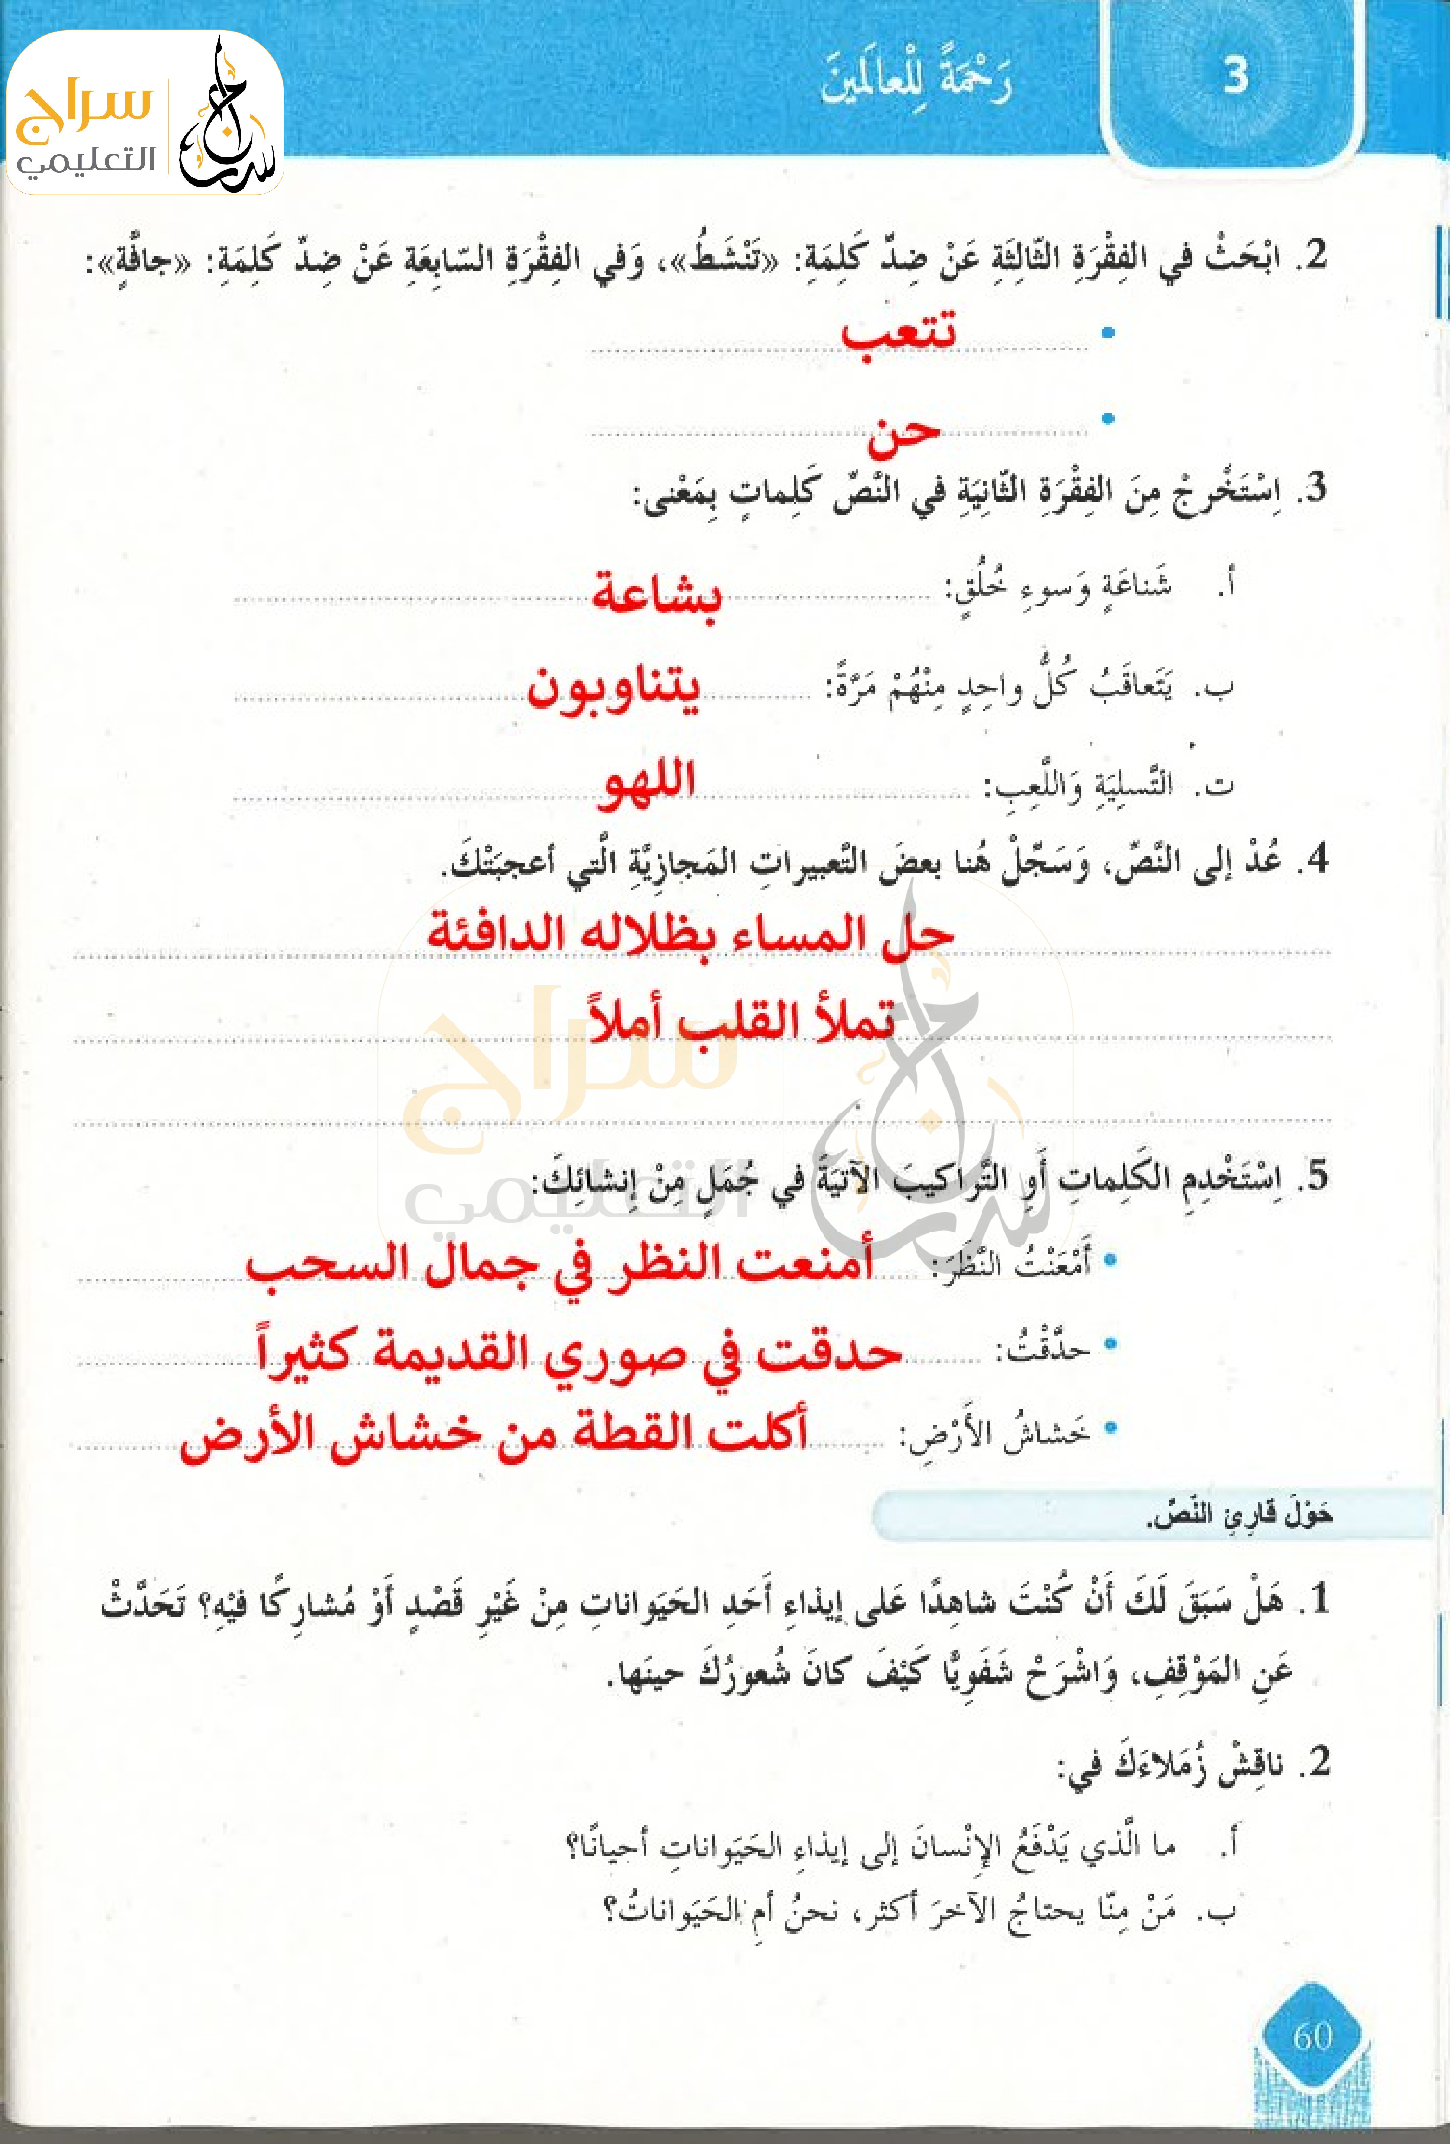 سراج
التعليمي
رَحْمَةً لِلْعالَمينَ
3
2. ابْحَثْ في الفِقْرَةِ الثّالِثَةِ عَنْ ضِدِّ كَلِمَةِ: «تَنْشَطُ»، وَفي الفِقْرَةِ السّابِعَةِ عَنْ ضِدِّ كَلِمَةِ: «جافَّةٍ»:
• تتعب
• حن
3. اِسْتَخْرِجْ مِنَ الفِقْرَةِ الثّانِيَةِ في النَّصِّ كَلِماتٍ بِمَعْنى:
أ. شَناعَةٍ وَسوءِ خُلُقٍ: بشاعة
ب. يَتَعاقَبُ كُلُّ واحِدٍ مِنْهُمْ مَرَّةً: يتناوبون
ت. التَّسلِيَةِ وَاللَّعِبِ: اللهو
4. عُدْ إلى النَّصِّ، وَسَجِّلْ هُنا بعضَ التَّعبيراتِ المَجازِيَّةِ الَّتي أعجبَتْكَ.
حل المساء بظلاله الدافئة
تملأ القلب أملاً
سراج
التعليمي
5. اِسْتَخْدِمِ الكَلِماتِ أَوِ التَّراكيبَ الآتيَةَ في جُمَلٍ مِنْ إنشائِكَ:
• أَمْعَنْتُ النَّظَرَ: أمنعت النظر في جمال السحب
• حدَّقْتُ: حدقت في صوري القديمة كثيراً
• خَشاشُ الأَرْضِ: أكلت القطة من خشاش الأرض
حَوْلَ قارِئِ النّصِّ.
1. هَلْ سَبَقَ لَكَ أَنْ كُنْتَ شاهِدًا عَلى إيذاءِ أَحَدِ الحَيَواناتِ مِنْ غَيْرِ قَصْدٍ أَوْ مُشارِكًا فيْهِ؟ تَحَدَّثْ
عَنِ المَوْقِفِ، وَاشْرَحْ شَفَوِيًّا كَيْفَ كانَ شُعورُكَ حينَها.
2. ناقِشْ زُمَلاءَكَ في:
أ. ما الَّذي يَدْفَعُ الإنْسانَ إلى إيذاءِ الحَيَواناتِ أحيانًا؟
ب. مَنْ مِنّا يحتاجُ الآخرَ أكثر، نحنُ أمِ الحَيَواناتُ؟
60